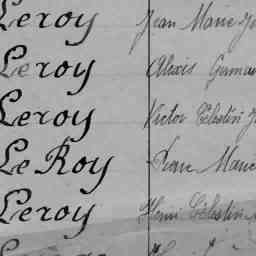 Leroy Jean Marie
Leroy Alexis Germain
Leroy Victor Célestin
Le Roy Jean Marie
Leroy Henri Célestin